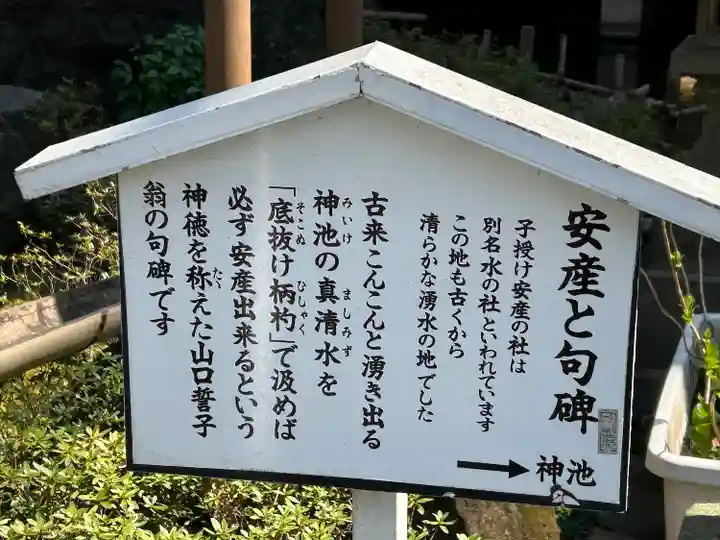 安産と句碑
子授け安産の社は
別名水の社といわれています
この地も古くから
清らかな湧水の地でした
古来こんこんと湧き出る
神池の真清水を
みいけ
ましみず
「底抜け柄杓」で汲めば
そこぬ
ひしゃく
必ず安産出来るという
神徳を称えた山口誓子
たた
翁の句碑です
神池